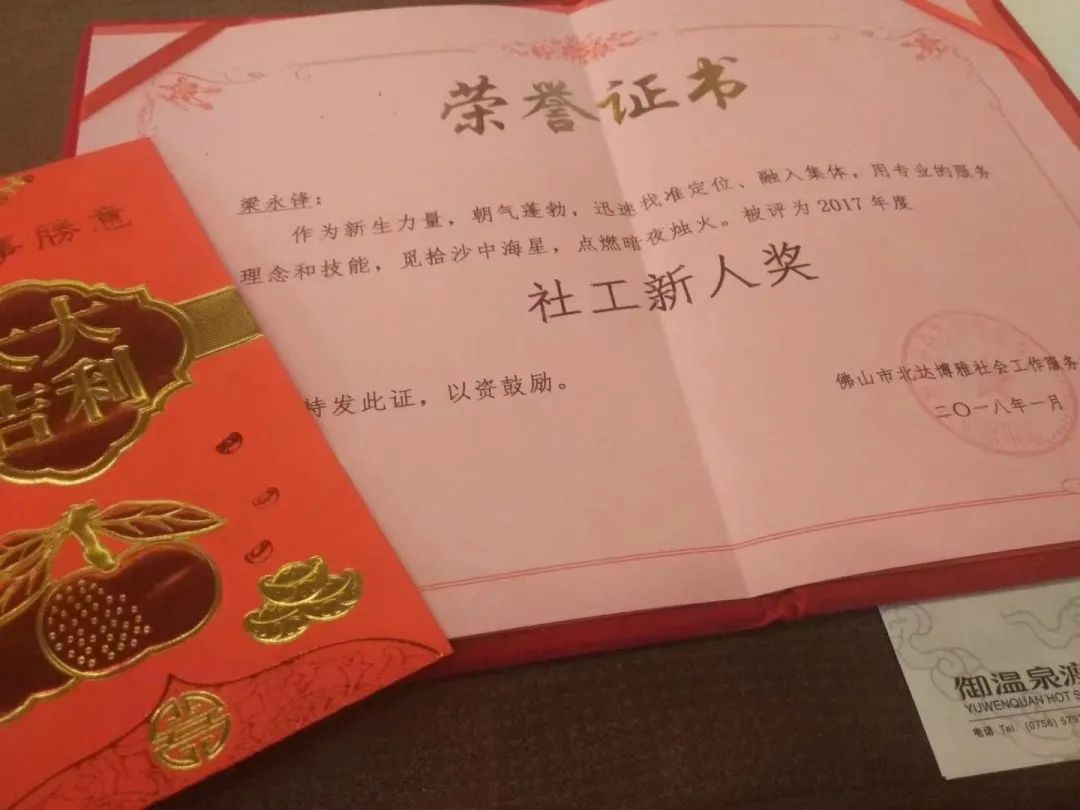 荣誉证书
梁永锋：
作为新生力量，朝气蓬勃，迅速找准定位、融入集体，用专业的服务
理念和技能，觅拾沙中海星，点燃暗夜烛火。被评为 2017 年度
社工新人奖
特发此证，以资鼓励。
佛山市北达博雅社会工作服务
二〇一八年一月
事勝意
大大
吉利
御温泉渡
YUWENQUAN HOT S
电话 Tel. (0756) 579